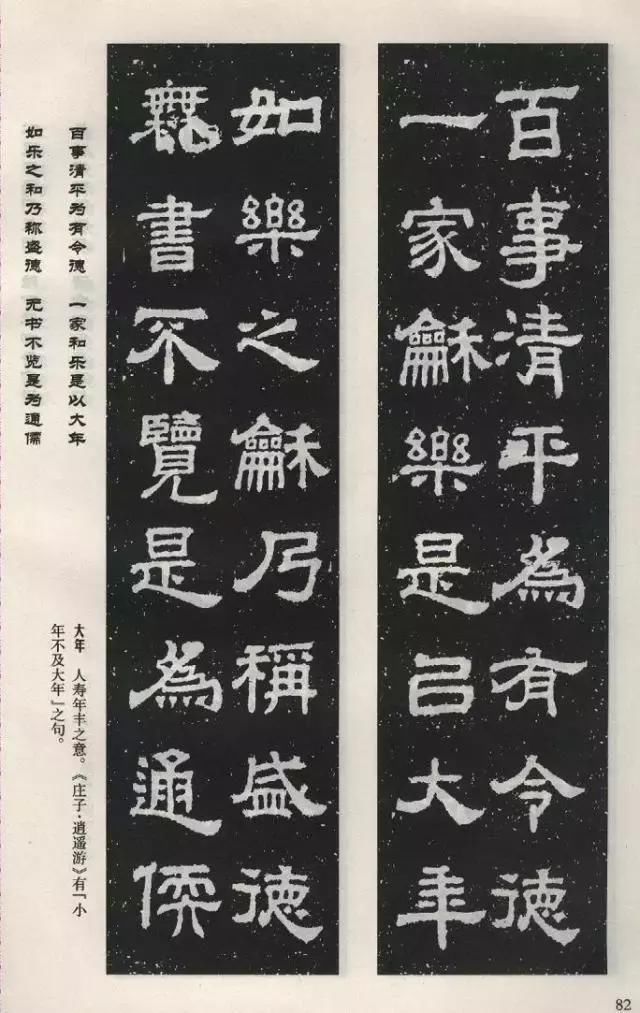 百事清平為有令德
一家龢樂是㠯大年
如樂之龢乃稱盛德
無書不覽是為通儒
百事清平为有令德 一家和乐是以大年
如乐之和乃称盛德 无书不览是为通儒
大年 人寿年丰之意。《庄子·逍遥游》有『小
年不及大年』之句。
82